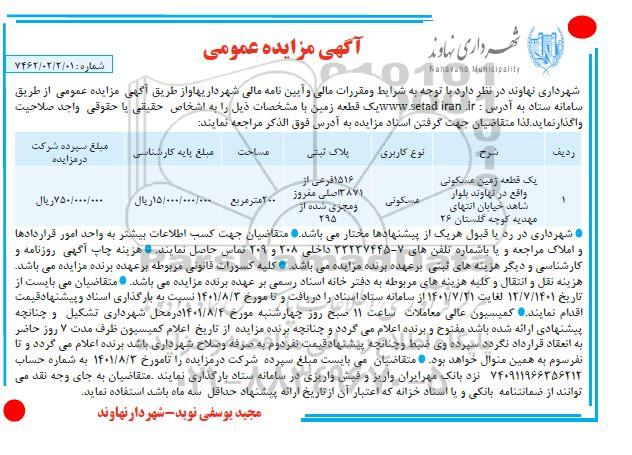 شهرداری نهاوند
Nahavand Municipality
آگهی مزایده عمومی
شماره: ۷۴۶۲/۰۲/۲/۰۱
شهرداری نهاوند در نظر دارد با توجه به شرایط ومقررات مالی وآیین نامه مالی شهرداریهااز طریق آگهی مزایده عمومی از طریق
سامانه ستاد به آدرس : www.setad iran .ir یک قطعه زمین با مشخصات ذیل را به اشخاص حقیقی یا حقوقی واجد صلاحیت
واگذارنماید.لذا متقاضیان جهت گرفتن اسناد مزایده به آدرس فوق الذکر مراجعه نمایند:
ردیف شرح نوع کاربری پلاک ثبتی مساحت مبلغ پایه کارشناسی مبلغ سپرده شرکت درمزایده
۱ یک قطعه زمین مسکونی واقع در نهاوند بلوار شاهد خیابان انتهای مهدیه کوچه گلستان ۲۶ مسکونی ۱۵۱۶فرعی از ۳۸۷۱اصلی مفروز ومجزی شده از ۲۹۵ ۲۰۰مترمربع ۱۵/۰۰۰/۰۰۰/۰۰۰ریال ۷۵۰/۰۰۰/۰۰۰ریال
شهرداری در رد یا قبول هریک از پیشنهادها مختار می باشد. متقاضیان جهت کسب اطلاعات بیشتر به واحد امور قراردادها
و املاک مراجعه و یا باشماره تلفن های ۷-۳۳۲۳۷۴۴۵ داخلی ۲۰۸ و ۲۰۹ تماس حاصل نمایند. هزینه چاپ آگهی روزنامه و
کارشناسی و دیگر هزینه های ثبتی برعهده برنده مزایده می باشد. کلیه کسورات قانونی مربوطه برعهده برنده مزایده می باشد.
هزینه نقل و انتقال و کلیه هزینه های مربوطه به دفتر خانه اسناد رسمی بر عهده برنده مزایده می باشد. متقاضیان می بایست از
تاریخ ۱۲/۷/۱۴۰۱ لغایت ۱۴۰۱/۷/۲۱ از سامانه ستاد اسناد را دریافت و تا مورخ ۱۴۰۱/۸/۳ نسبت به بارگذاری اسناد وپیشنهادقیمت
اقدام نمایند. کمیسیون عالی معاملات ساعت ۱۱ صبح روز چهارشنبه مورخ ۱۴۰۱/۸/۴درمحل شهرداری تشکیل و چنانچه
پیشنهادی ارائه شده باشد مفتوح و برنده اعلام می گردد و چنانچه برنده مزایده از تاریخ اعلام کمیسیون ظرف مدت ۷ روز حاضر
به انعقاد قرارداد نگردد سپرده وی ضبط وچنانچه پیشنهادقیمت نفردوم به صرفه وصلاح شهرداری باشد برنده اعلام می گردد و تا
نفرسوم به همین منوال خواهد بود. متقاضیان می بایست مبلغ سپرده شرکت درمزایده را تامورخ ۱۴۰۱/۸/۳ به شماره حساب
۷۴۰۹۱۱۹۶۶۳۵۶۲۱۲ نزد بانک مهرایران واریز و فیش واریزی در سامانه ستاد بارگذاری نمایند .متقاضیان به جای وجه نقد می
توانند از ضمانتنامه بانکی و یا اسناد خزانه که اعتبار آن ازتاریخ ارائه پیشنهاد حداقل سه ماه باشد استفاده نماید.
مجید یوسفی نوید-شهردارنهاوند